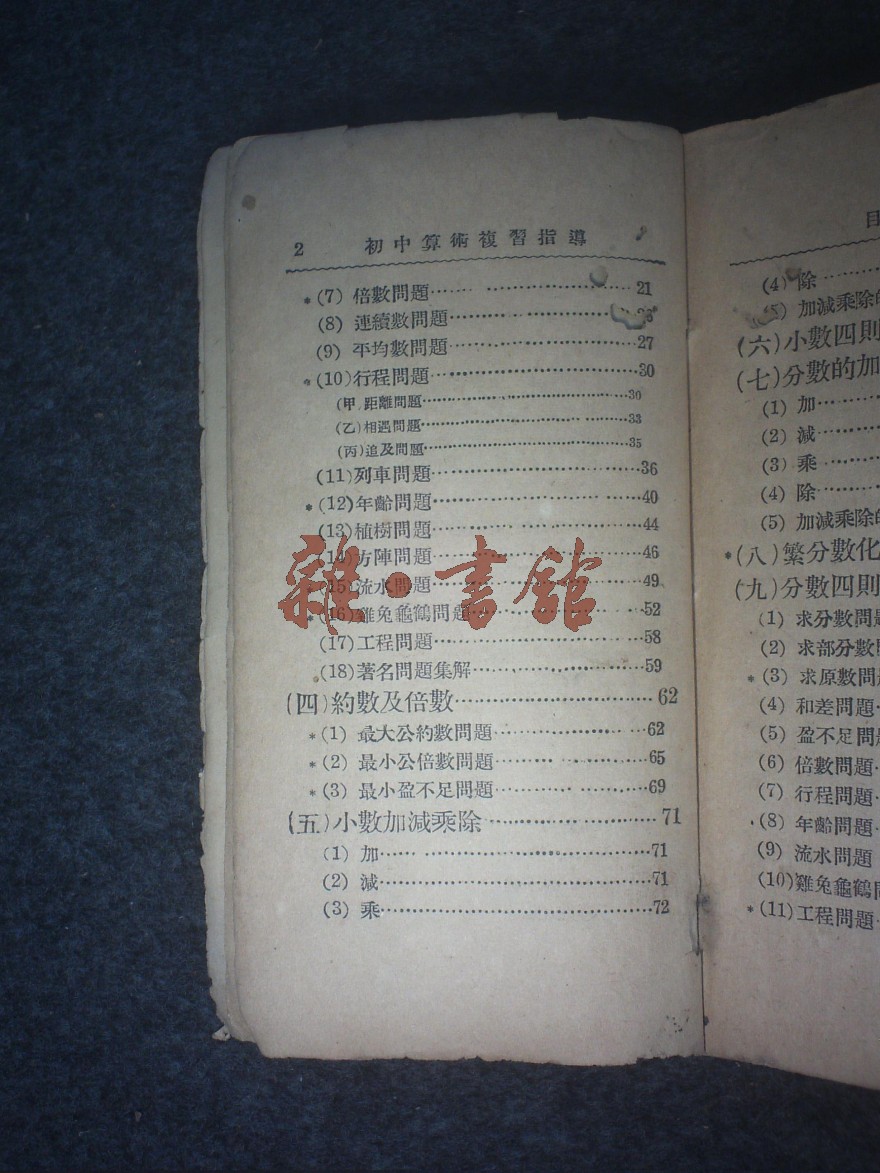 2 初中算術複習指導
*(7) 倍數問題……21
(8) 連續數問題……
(9) 平均數問題……27
*(10)行程問題……30
(甲)距離問題……30
(乙)相遇問題……33
(丙)追及問題……35
(11)列車問題……36
*(12)年齡問題……40
(13)植樹問題……44
(14)方陣問題……46
(15)流水問題……49
*(16)雞兔龜鶴問題……52
(17)工程問題……58
(18)著名問題集解……59
(四)約數及倍數……62
*(1) 最大公約數問題……62
*(2) 最小公倍數問題……65
*(3) 最小盈不足問題……69
(五)小數加減乘除……71
(1) 加……71
(2) 減……71
(3) 乘……72
雜·書館
目
(4) 除……
(5) 加減乘除的
(六)小數四則
(七)分數的加
(1) 加……
(2) 減……
(3) 乘……
(4) 除……
(5) 加減乘除的
*(八)繁分數化
(九)分數四則
(1) 求分數問題
(2) 求部分數問
*(3) 求原數問
(4) 和差問題
(5) 盈不足問
(6) 倍數問題
(7) 行程問題
*(8) 年齡問題
(9) 流水問題
(10)雞兔龜鶴問
*(11)工程問題